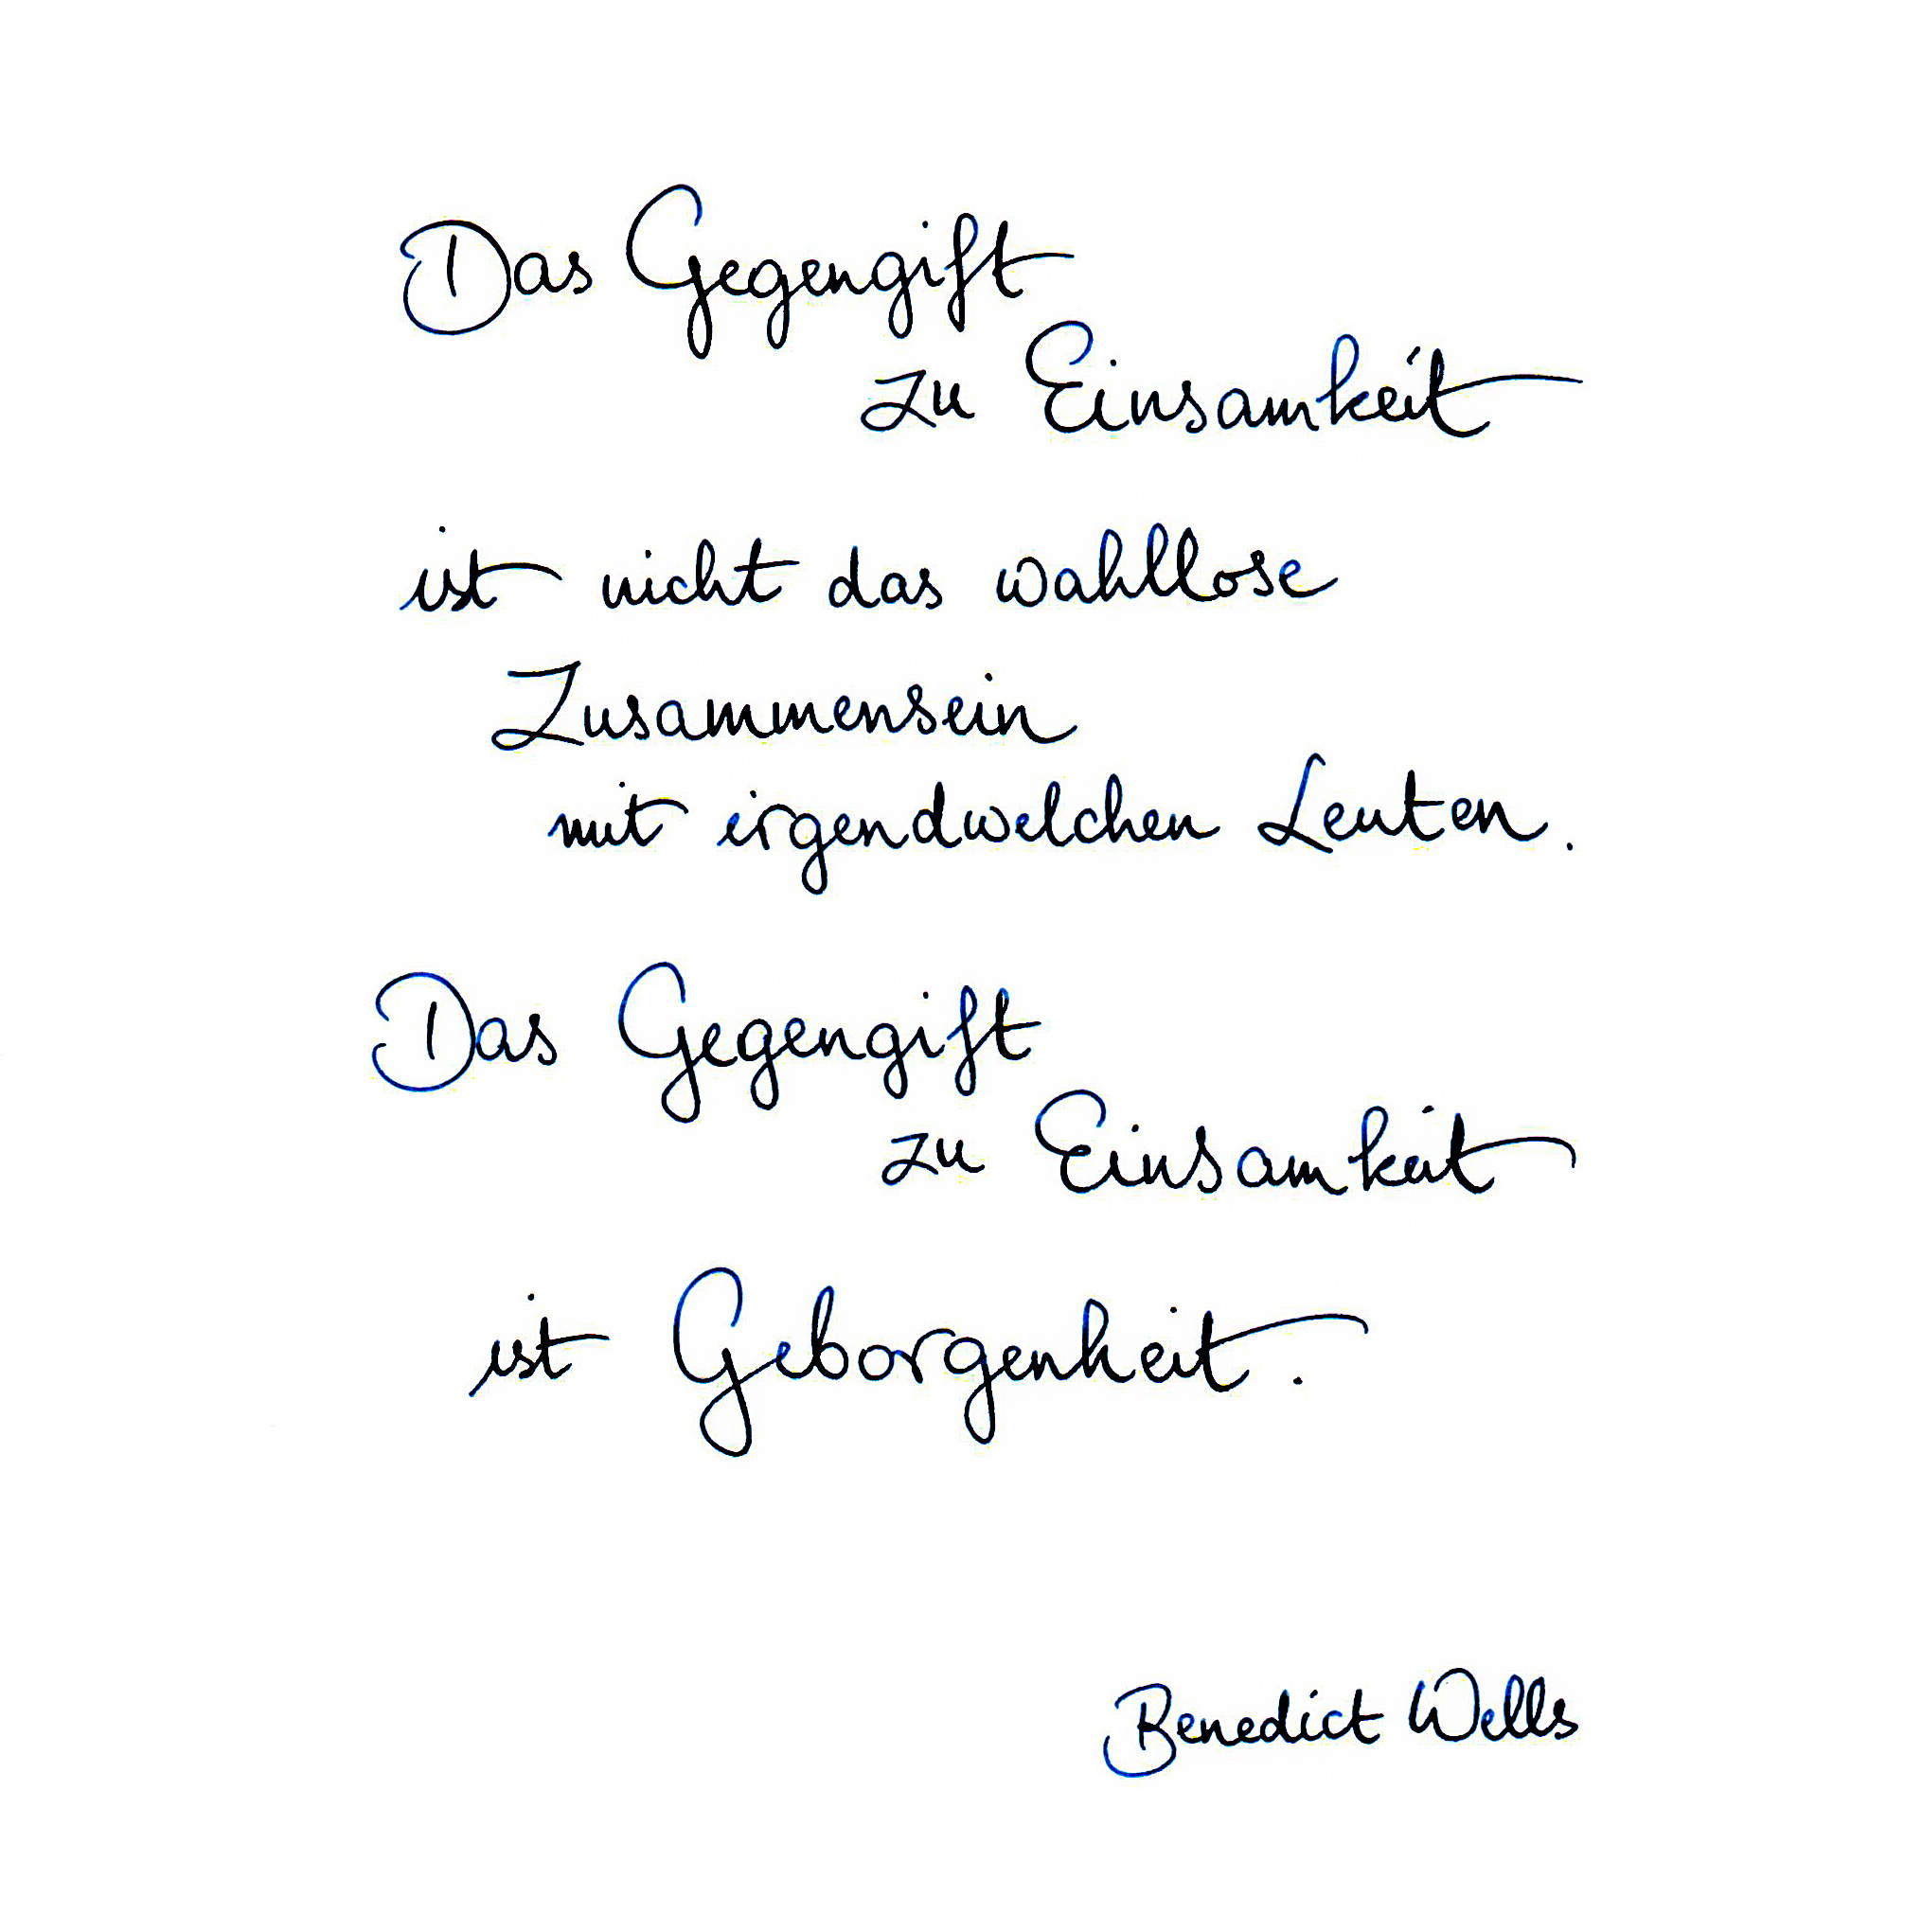 Das Gegengift
zu Einsamkeit
ist nicht das wahllose
Zusammensein
mit irgendwelchen Leuten.
Das Gegengift
zu Einsamkeit
ist Geborgenheit.
Benedict Wells